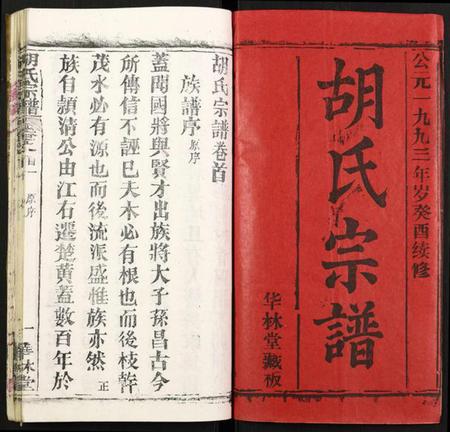 公元一九九三年岁癸酉续修
胡氏宗譜
华林堂藏板
胡氏宗譜卷首
族譜序 原序
蓋聞國將興賢才出族將大子孫昌古今
所傳信不誣已夫木必有根也而後枝幹
茂水必有源也而後流派盛惟族亦然 正
族自頴清公由江右遷楚黃蓋數百年於
胡氏宗譜 卷首
原序
一
華林堂